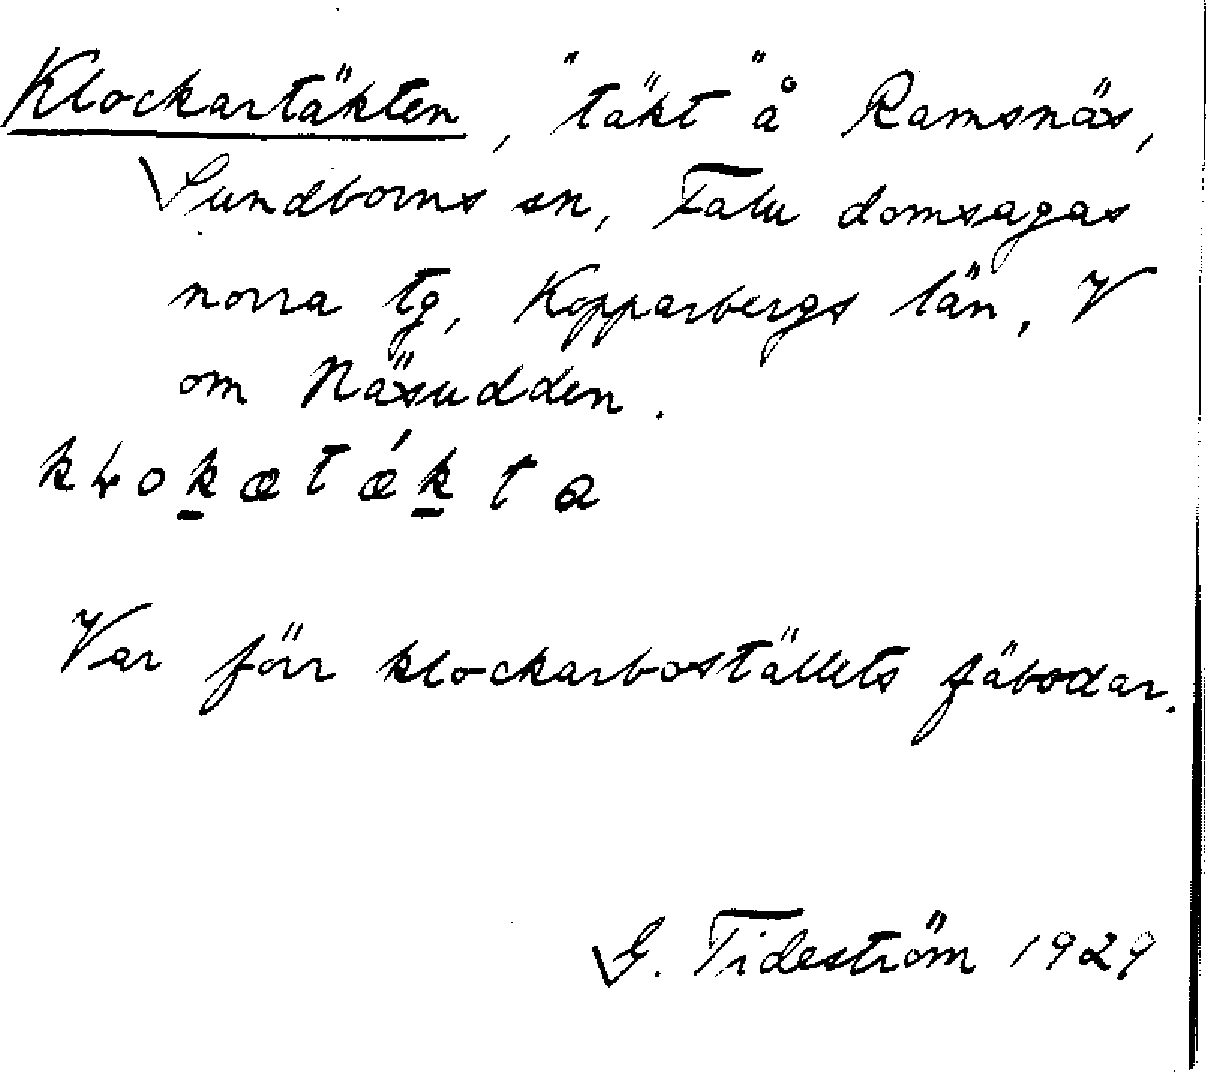 Klockartäkten, "täkt" å Ramsnäs,
Sundborns sn, Falu domsagas
norra tg, Kopparbergs län, V
om Näsudden.
kɬok̲ætǽk̲ta
Var förr klockarboställets fäbodar.
G. Tideström 1929